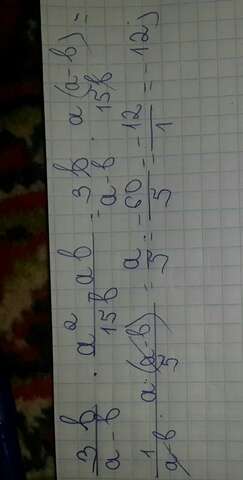 3b/(a-b) · (a² - ab)/(15b) = 3b/(a-b) · a(a-b)/(15b) =
1/(a-b) · a·(a-b)/5 = a/5 = -60/5 = -12/1 = -12;